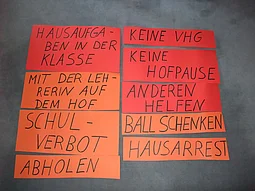 HAUSAUFGA-
BEN IN DER
KLASSE
MIT DER LEH-
RERIN AUF
DEM HOF
SCHUL-
VERBOT
ABHOLEN
KEINE VHG
KEINE
HOFPAUSE
ANDEREN
HELFEN
BALL SCHENKEN
HAUSARREST